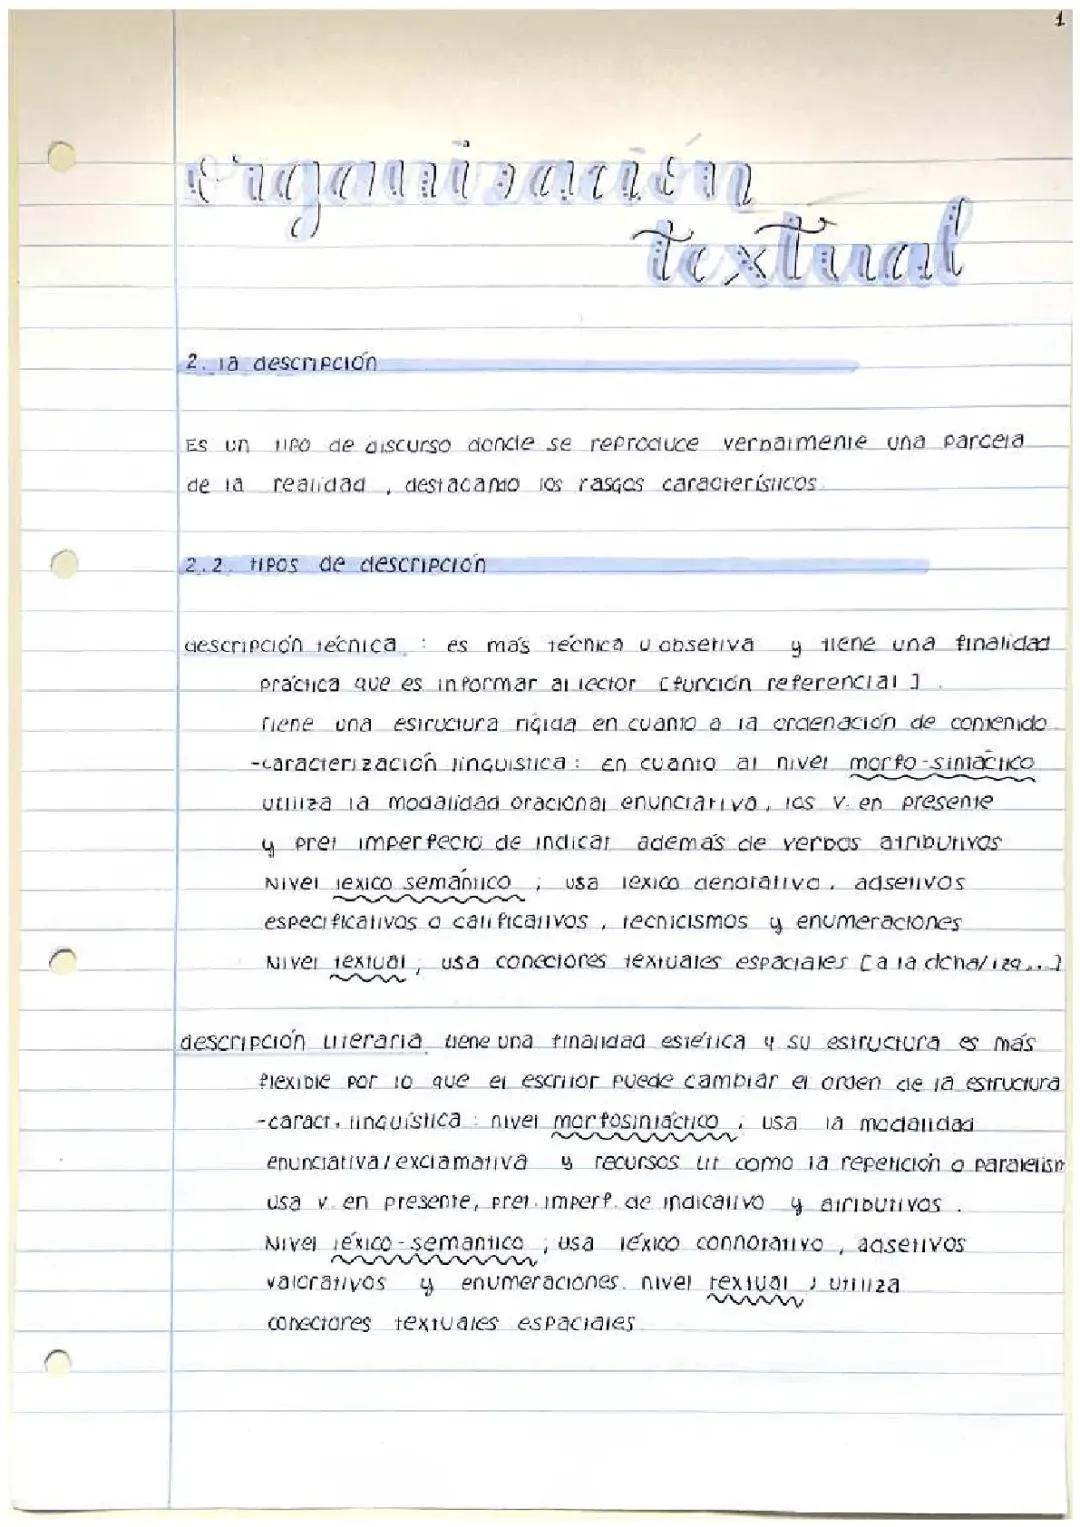 1
organización
textual
2. la descripción
Es un tipo de discurso donde se reproduce verbalmente una parcela
de la realidad, destacando los rasgos característicos.
2.2. tipos de descripción
descripción técnica : es más técnica u obsetiva y tiene una finalidad
práctica que es informar al lector [función referencial].
Tiene una estructura rígida en cuanto a la ordenación de contenido.
-caracterización linguistica: En cuanto al nivel morfo-sintáctico
utiliza la modalidad oracional enunciativa, los v. en presente
y pret imperfecto de indicat además de verbos atributivos
Nivel lexico semántico ; usa lexico denotativo, adsetivos
especificativos o calificativos, tecnicismos y enumeraciones
Nivel textual; usa conectores textuales espaciales [a la dcha/izq...]
descripción literaria tiene una finalidad estética y su estructura es más
flexible por lo que el escritor puede cambiar el orden de la estructura
-caract. linguística : nivel morfosintáctico ; usa la modalidad
enunciativa/exclamativa y recursos lit como la repetición o paralelism
usa v. en presente, pret. imperf. de indicativo y atributivos.
Nivel léxico-semantico ; usa léxico connotativo, adsetivos
valorativos y enumeraciones. nivel textual ; utiliza
conectores textuales espaciales.